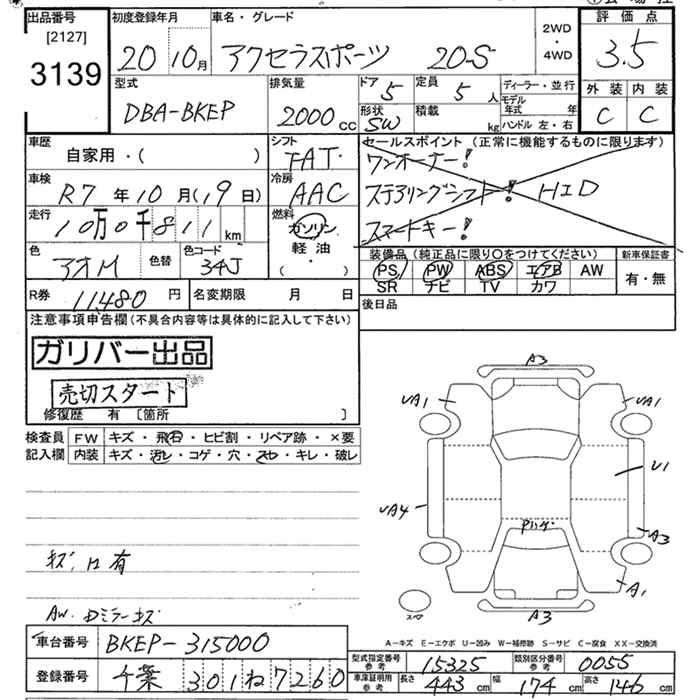 出品番号 初度登録年月 車名・グレード 2WD・4WD 評価点
[2127]
3139 20 10月 アクセラスポーツ 20-S 3.5
型式 排気量 ドア 5 定員 5人 ディーラー・並行 外装 内装
DBA-BKEP 2000cc 形状 SW 積載 kg モデル年式 年 C C
ハンドル 左・右
車歴 シフト セールスポイント (正常に機能するものに限ります)
自家用・( ) FAT ワンオーナー!
車検 冷房
R7年10月(19日) AAC ステアリングシフト! HID
走行 燃料
10万0千811km ガソリン・軽油・ スマートキー!
色 色替 色コード 装備品 (純正品に限り○をつけてください) 新車保証書
アオM 34J PS PW ABS エアB AW 有・無
SR ナビ TV カワ
R券 11480円 名変期限 月 日 後日品
注意事項申告欄(不具合内容等は具体的に記入して下さい)
ガリバー出品
売切スタート
修復歴 有 [箇所 ]
検査員 FW キズ・飛石・ヒビ割・リペア跡・×要
記入欄 内装 キズ・汚レ・コゲ・穴・スレ・キレ・破レ
A3
UA1 UA1
U1
UA4
Pハゲ
A3
A1
キズ、凹有
スペア
A3
AW・Dミラーキズ
A-キズ E-エクボ U-凹み W-補修跡 S-サビ C-腐食 XX-交換済
車台番号 BKEP-315000
型式指定番号 参考 15325 類別区分番号 参考 0055
登録番号 千葉 301 ね 7260
車庫証明用 参考 長さ 443cm 幅 174cm 高さ 146cm